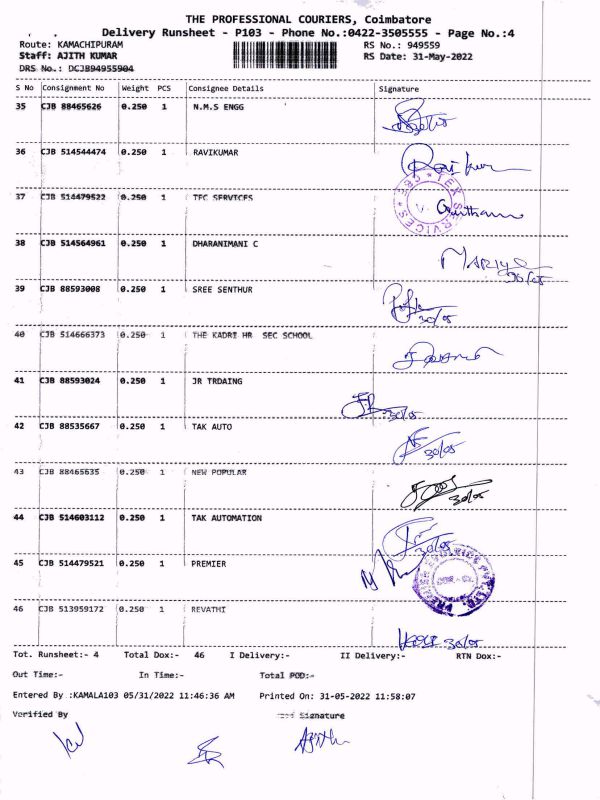 THE PROFESSIONAL COURIERS, Coimbatore
Delivery Runsheet - P103 - Phone No.:0422-3505555 - Page No.:4
Route: KAMACHIPURAM RS No.: 949559
Staff: AJITH KUMAR RS Date: 31-May-2022
DRS No.: DCJB94955904
S No Consignment No Weight PCS Consignee Details Signature
35 CJB 88465626 0.250 1 N.M.S ENGG
36 CJB 514544474 0.250 1 RAVIKUMAR Ravi kumar
37 CJB 514479522 0.250 1 TEC SERVICES
38 CJB 514564961 0.250 1 DHARANIMANI C
30/05
39 CJB 88593008 0.250 1 SREE SENTHUR
30/05
40 CJB 514666373 0.250 1 THE KADRI HR SEC SCHOOL
41 CJB 88593024 0.250 1 JR TRDAING
30/05
42 CJB 88535667 0.250 1 TAK AUTO
30/05
43 CJB 88465635 0.250 1 NEW POPULAR
30/05
44 CJB 514603112 0.250 1 TAK AUTOMATION
30/05
45 CJB 514479521 0.250 1 PREMIER
46 CJB 513959172 0.250 1 REVATHI
30/05
Tot. Runsheet:- 4 Total Dox:- 46 I Delivery:- II Delivery:- RTN Dox:-
Out Time:- In Time:- Total POD:-
Entered By :KAMALA103 05/31/2022 11:46:36 AM Printed On: 31-05-2022 11:58:07
Verified By Signature